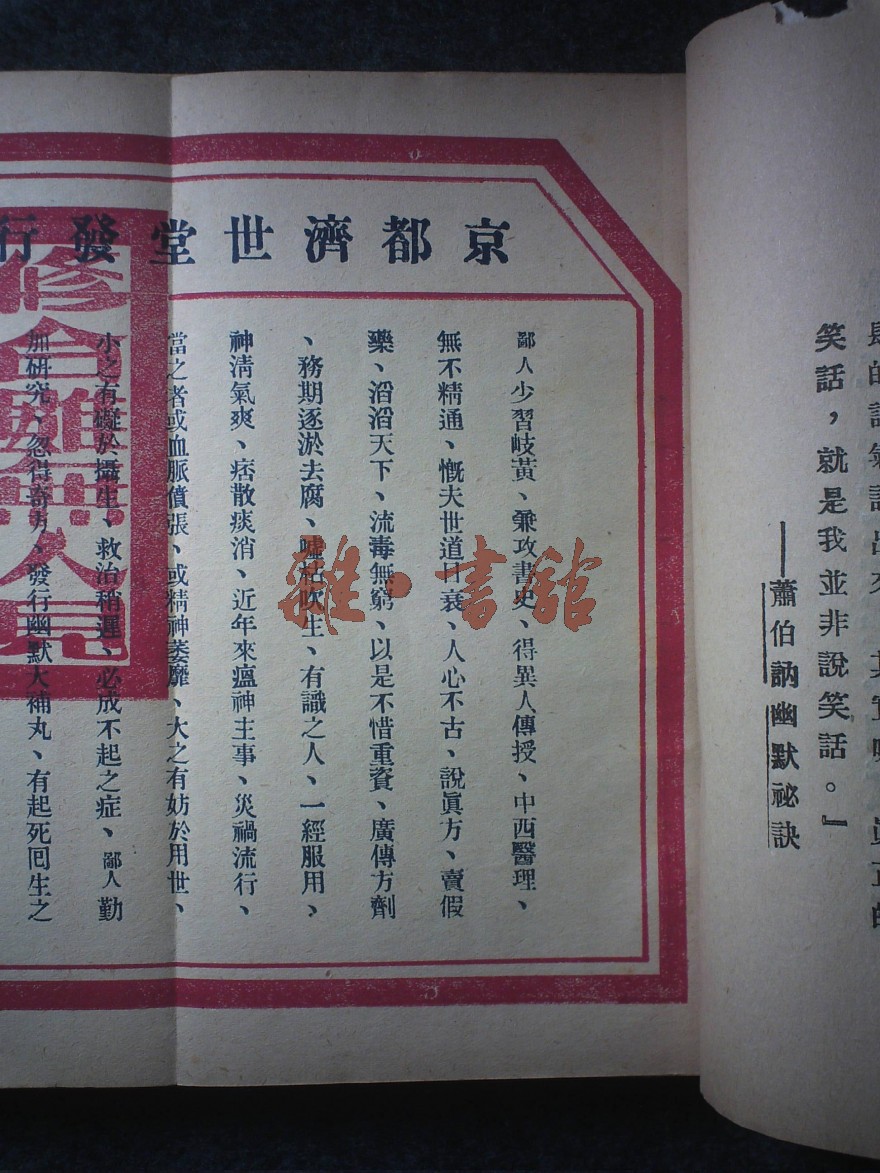 笑話，就是我並非說笑話。』
——蕭伯訥幽默祕訣
京都濟世堂發行
鄙人少習岐黃、兼攻書史、得異人傳授、中西醫理、
無不精通、慨夫世道日衰、人心不古、說眞方、賣假
藥、滔滔天下、流毒無窮、以是不惜重資、廣傳方劑
、務期逐淤去腐、噓枯吹生、有識之人、一經服用、
神淸氣爽、痞散痰消、近年來瘟神主事、災禍流行、
當之者或血脈僨張、或精神萎靡、大之有妨於用世、
小之有礙於攝生、救治稍遲、必成不起之症、鄙人勤
加研究、忽得奇方、發行幽默大補丸、有起死回生之
修合雖無人見
雜·書館